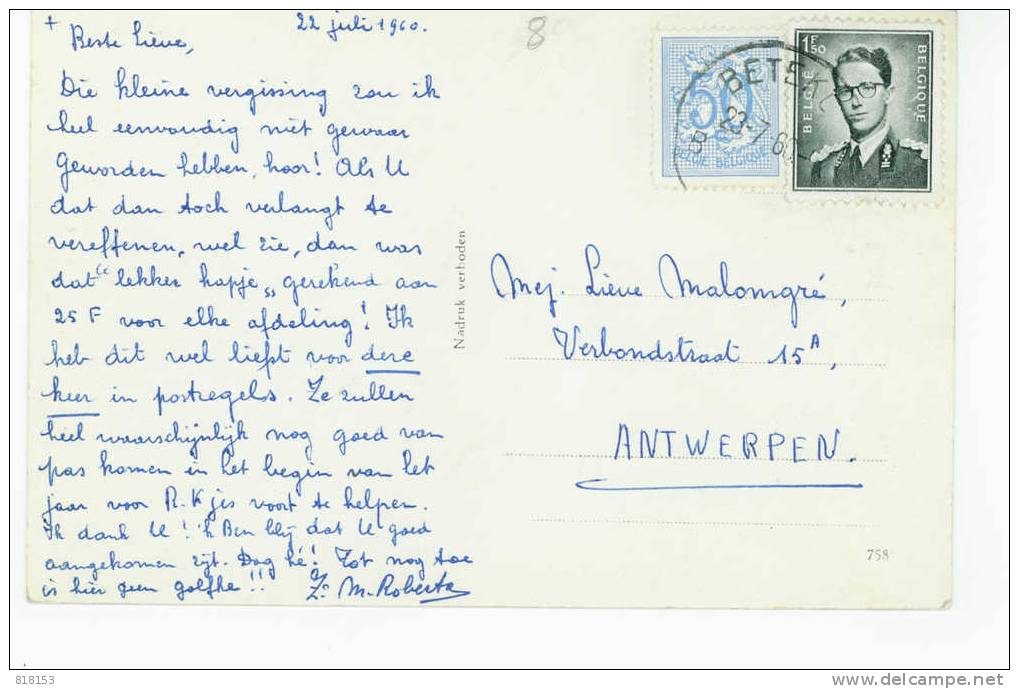 + 22 juli 1960.
Beste Lieve,
Die kleine vergissing zou ik
heel eenvoudig niet gewaar
geworden hebben, hoor! Als U
dat dan toch verlangt te
vereffenen, wel zie, dan was
dat "lekker hapje„ gerekend aan
25 F voor elke afdeling! Ik
heb dit wel liefst voor deze
keer in postzegels. Ze zullen
heel waarschijnlijk nog goed van
pas komen in het begin van het
jaar voor R.K jes voort te helpen.
Ik dank U! 'k Ben blij dat U goed
aangekomen zijt. Dag hé! Tot nog toe
is hier geen golfke!! Zr M. Roberta
8
50
BELGIE BELGIQUE
1F50
BELGIË
BELGIQUE
BETEK
23-7-60
Nadruk verboden
Mej. Lieve Malomgré,
Verbondstraat 15A,
ANTWERPEN.
758
818153
www.delcampe.net